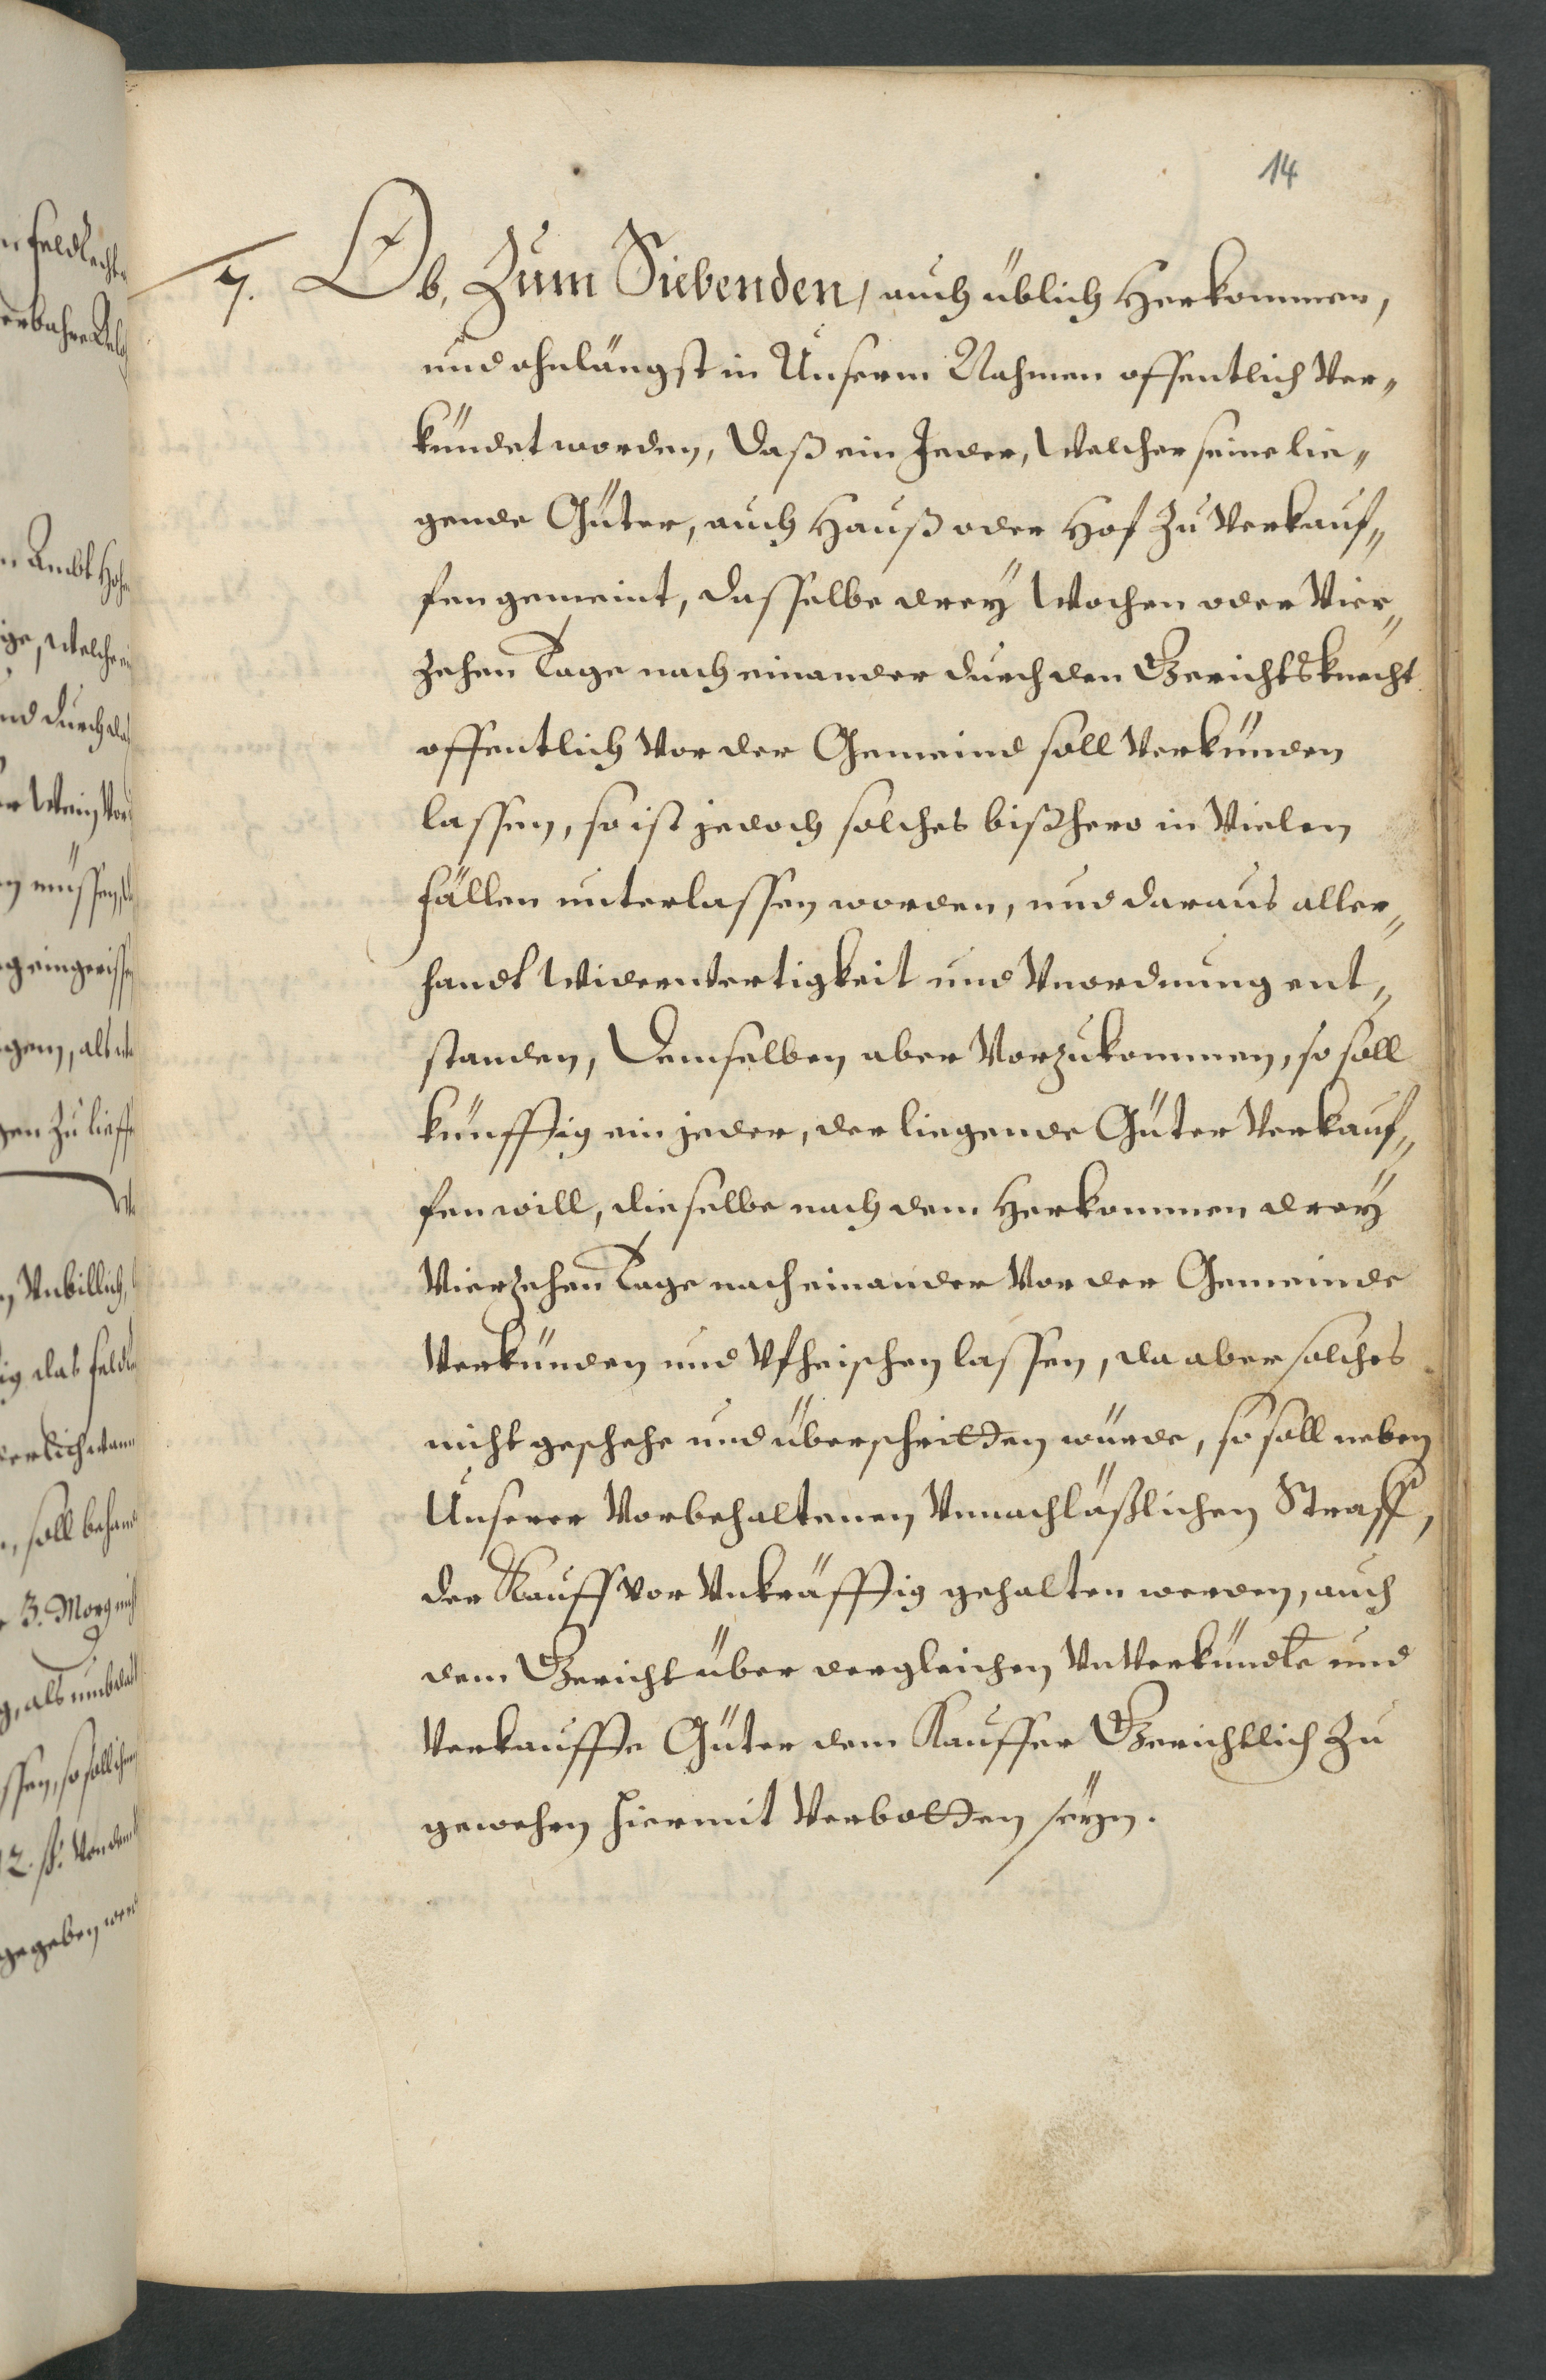 14
7. Ob, Zum Siebenden, auch üblich Herkommen,
und ohnlängst in Unserm Nahmen offentlich Ver„
kündet worden, daß ein Jeder, Welcher seine lie„
gende Güter, auch Hauß oder Hof Zu Verkauf„
fen gemeint, dasselbe dreÿ Wochen oder Vier„
zehen Tage nach einander durch den Gerichtsknecht
offentlich Vor der Gemeind soll Verkünden
lassen, so ist jedoch solches bißhero in Vielen
fällen unterlassen worden, und daraus aller„
handt Widerwertigkeit und Vnordnung ent„
standen, Demselben aber Vorzukommen, so soll
künfftig ein jeder, der liegende Güter Verkauf„
fen will, dieselbe nach dem Herkommen dreÿ
Vierzehen Tage nach einander Vor der Gemeinde
Verkünden und Vfheischen lassen, da aber solches
nicht geschehe und überschritten würde, so soll neben
Unserer Vorbehaltenen Vnnachläßlichen Straff,
der Kauff vor Vnkräfftig gehalten werden, auch
dem Gericht über dergleichen VnVerkündte und
Verkauffte Güter dem Kauffer Gerichtlich Zu
gewehren hiermit Verbotten seÿn.